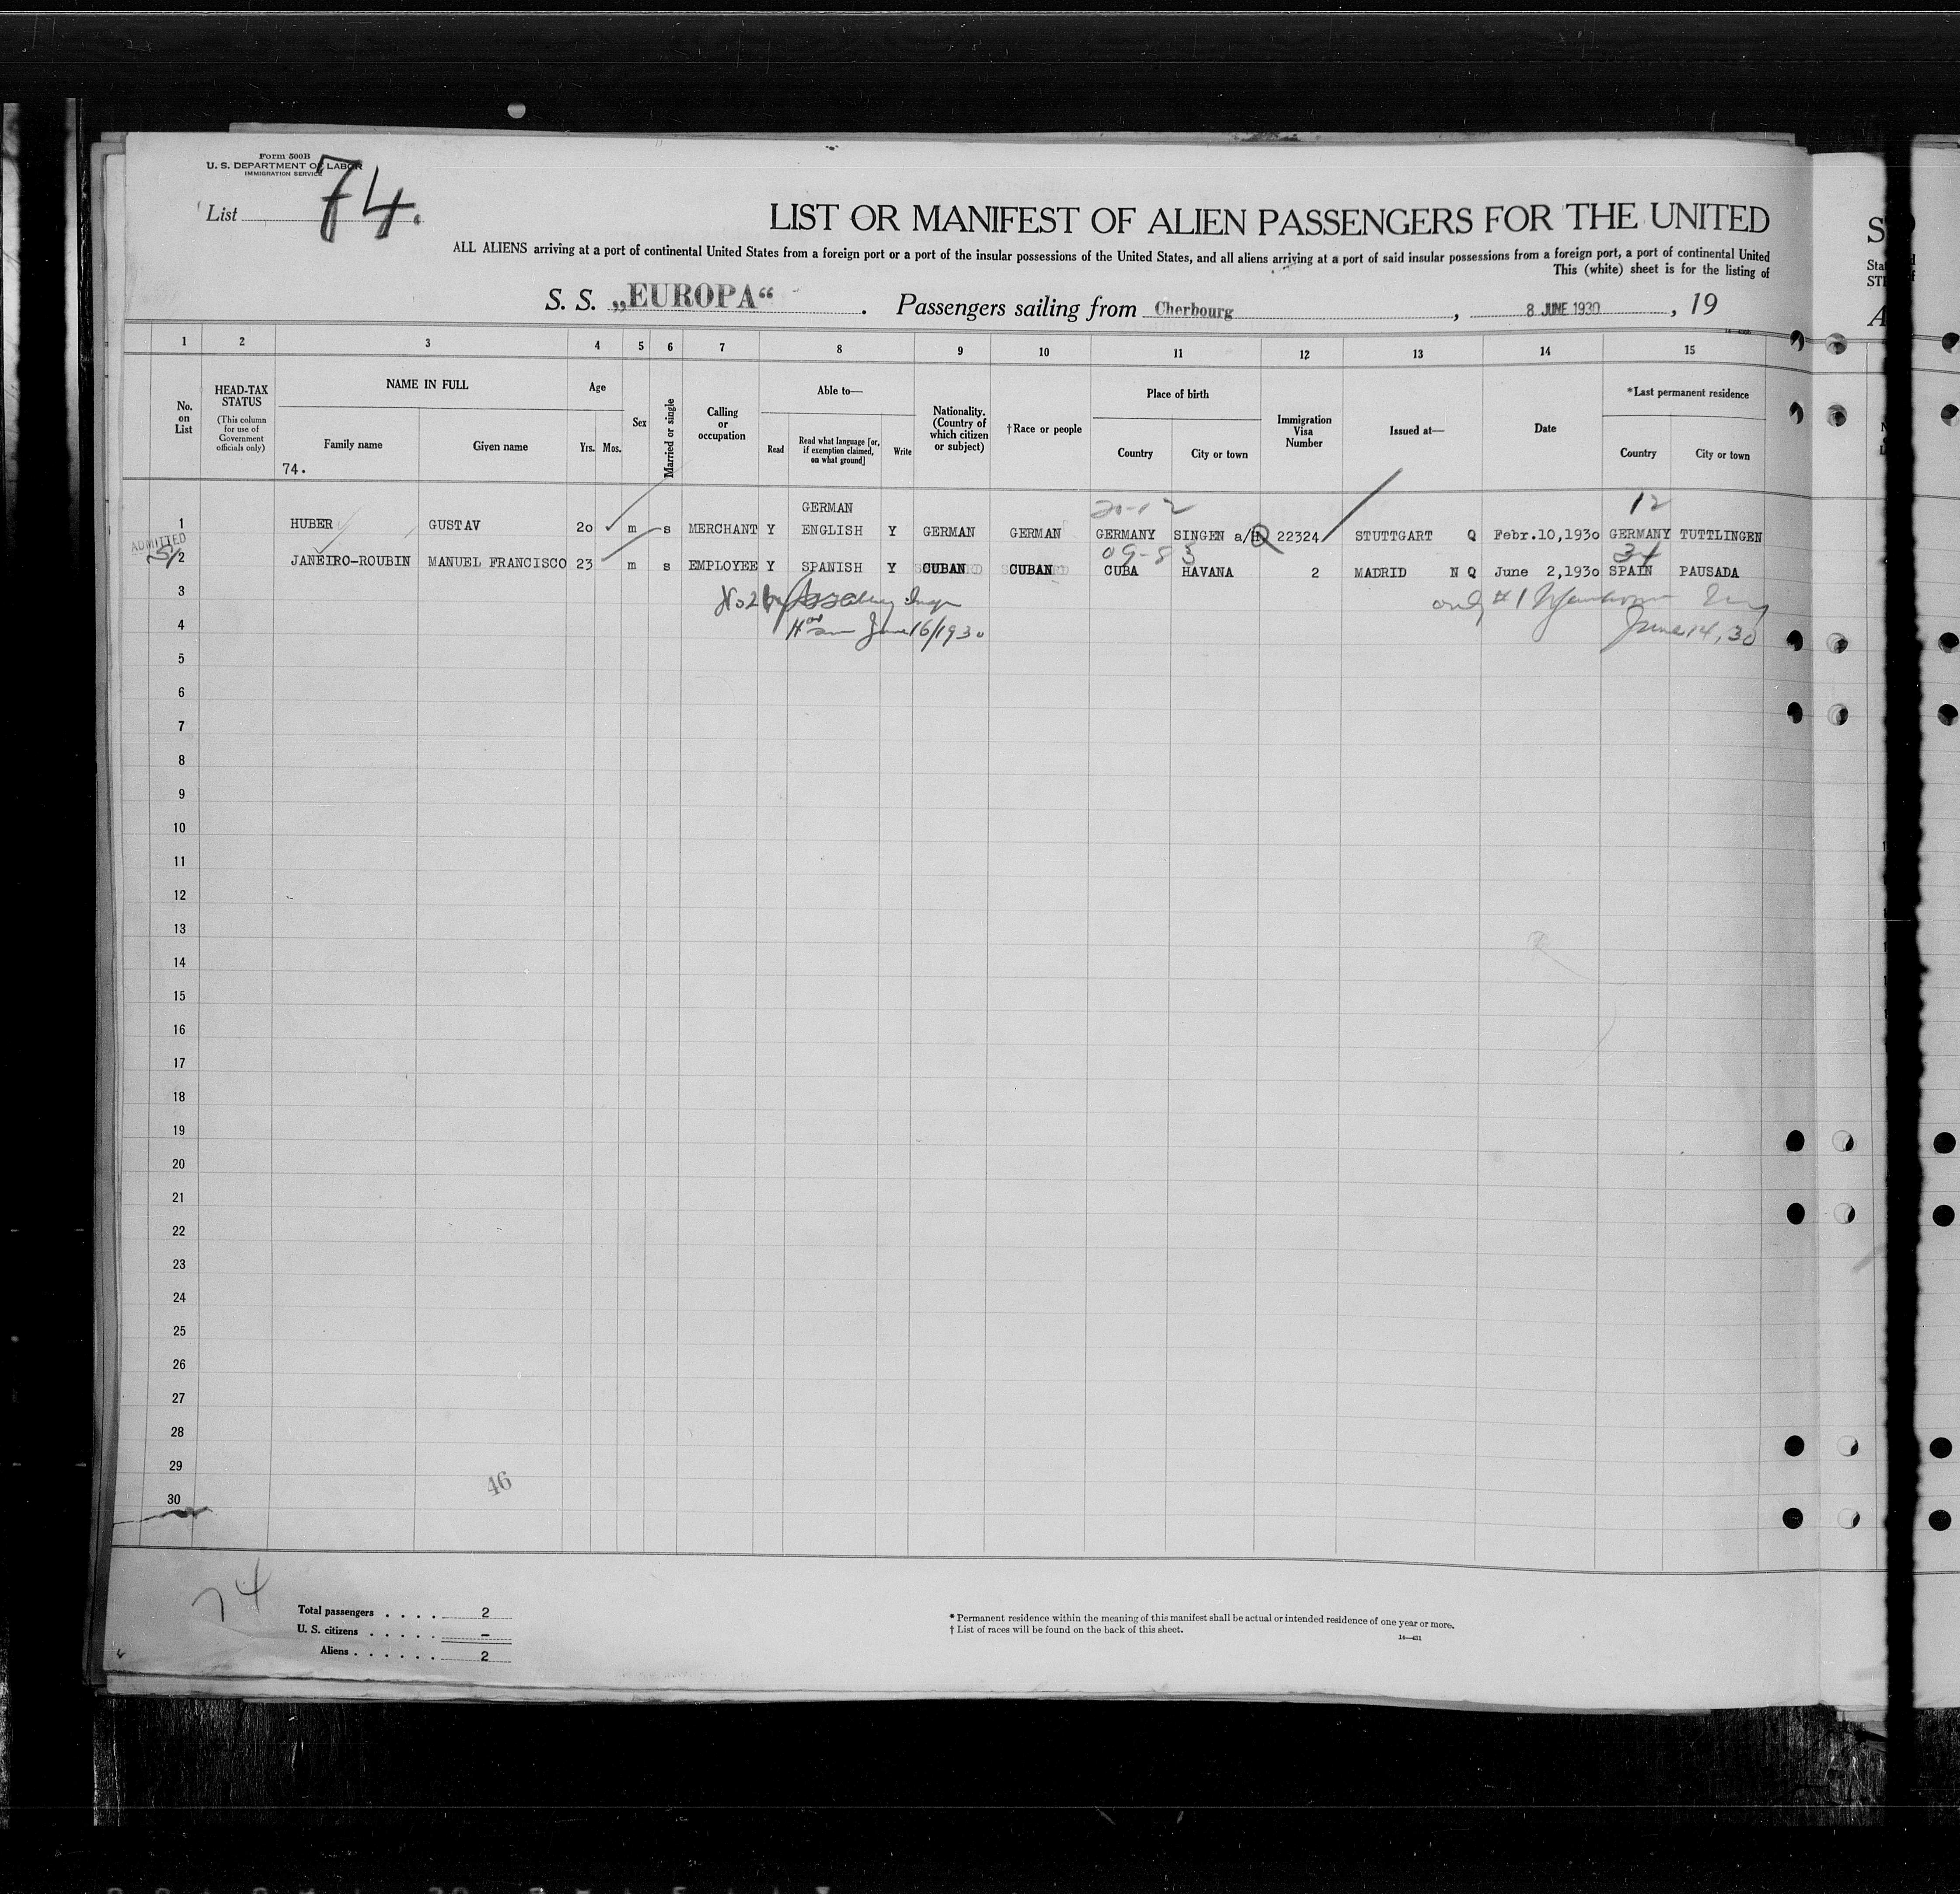 Form 500B
U. S. DEPARTMENT OF LABOR
IMMIGRATION SERVICE
List 74.
LIST OR MANIFEST OF ALIEN PASSENGERS FOR THE UNITED
ALL ALIENS arriving at a port of continental United States from a foreign port or a port of the insular possessions of the United States, and all aliens arriving at a port of said insular possessions from a foreign port, a port of continental United
This (white) sheet is for the listing of
S. S. „EUROPA“ . Passengers sailing from Cherbourg , 8 JUNE 1930 , 19
1 2 3 4 5 6 7 8 9 10 11 12 13 14 15
No. on List
HEAD-TAX STATUS
(This column for use of Government officials only)
NAME IN FULL
Family name
Given name
74.
Age
Yrs. Mos.
Sex
Married or single
Calling or occupation
Able to—
Read
Read what language [or, if exemption claimed, on what ground]
Write
Nationality. (Country of which citizen or subject)
†Race or people
Place of birth
Country
City or town
Immigration Visa Number
Issued at—
Date
*Last permanent residence
Country
City or town
20-12 12
1 HUBER GUSTAV 20 m s MERCHANT Y GERMAN ENGLISH Y GERMAN GERMAN GERMANY SINGEN a/H 22324 STUTTGART Q Febr.10,1930 GERMANY TUTTLINGEN
ADMITTED
2 JANEIRO-ROUBIN MANUEL FRANCISCO 23 m s EMPLOYEE Y SPANISH Y CUBAN CUBAN CUBA HAVANA 2 MADRID N Q June 2,1930 SPAIN PAUSADA
3 No 2 only #1
4 June 16/1930 June 14, 30
5
6
7
8
9
10
11
12
13
14
15
16
17
18
19
20
21
22
23
24
25
26
27
28
29
30
46
74
Total passengers . . . . 2
U. S. citizens . . . . . –
Aliens . . . . . . 2
* Permanent residence within the meaning of this manifest shall be actual or intended residence of one year or more.
† List of races will be found on the back of this sheet.
14—431